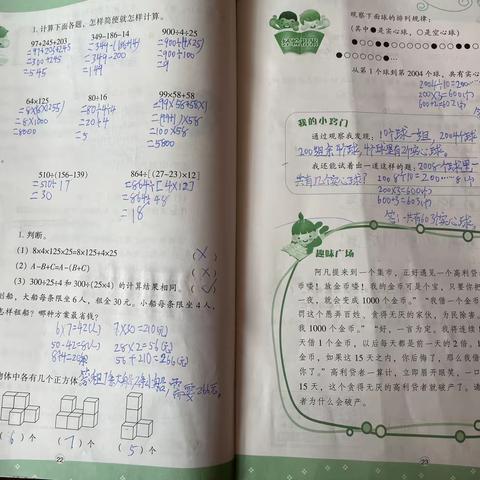 1. 计算下面各题，怎样简便就怎样计算。
97+245+203
349-186-14
900÷4÷25
=97+203+245
=349-(186+14)
=900÷(4×25)
=300+245
=349-200
=900÷100
=545
=149
=9
64×125
80÷16
99×58+58
=8×(8×125)
=80÷4÷4
=99×58+58×1
=8×1000
=20÷4
=(99+1)×58
=8000
=5
=100×58
=5800
510÷(156-139)
864÷[(27-23)×12]
=510÷17
=864÷[4×12]
=30
=864÷48
=18
1. 判断。
(1) 8×4×125×25=8×125+4×25 (×)
(2) A-B+C=A-(B+C) (×)
(3) 300÷25÷4 和 300÷(25×4) 的计算结果相同。
划船，大船每条限坐 6 人，租金 30 元。小船每条限坐 4 人，
怎样租船？哪种方案最省钱？
6×7=42(人) 7×30=210(元)
50-42=8(人) 28×2=56(元)
8÷4=2(条) 56+210=266(元)
物体中各有几个正方体
(6)个 (7)个 (5)个
22
观察下面球的排列规律：
(其中●是实心球，○是空心球)
从第 1 个球到第 2004 个球，共有实心
2004÷10=200
200×3=600(个)
600+2=602(个)
我的小窍门
通过观察我发现：10个球一组，2004个球
200组余4个球，4个球里有2个实心球。
我还能试着出一道这样的题：2008个球里一
共有几个实心球？2008÷10=200……8(个)
200×3=600(个)
600+3=603(个)
答：一共有603个实心球。
趣味广场
阿凡提来到一个集市，正好遇见一个高利贷者
币喽！放金币喽！我的金币可是个宝，只要你把
一夜，就会变成 1000 个金币。” “我借一个金币
罚这个愚弄百姓，贪得无厌的家伙，为民除害。
我 1000 个金币。” “好，一言为定。我将连续
天借 1 个金币，以后每天都是前一天的 2 倍。
金币，如果这 15 天之内，你后悔了，那么我借
你了。” 高利贷者一算计，立即眉开眼笑，一口
15 天，这个贪得无厌的高利贷者就破产了。请
者为什么会破产。
23